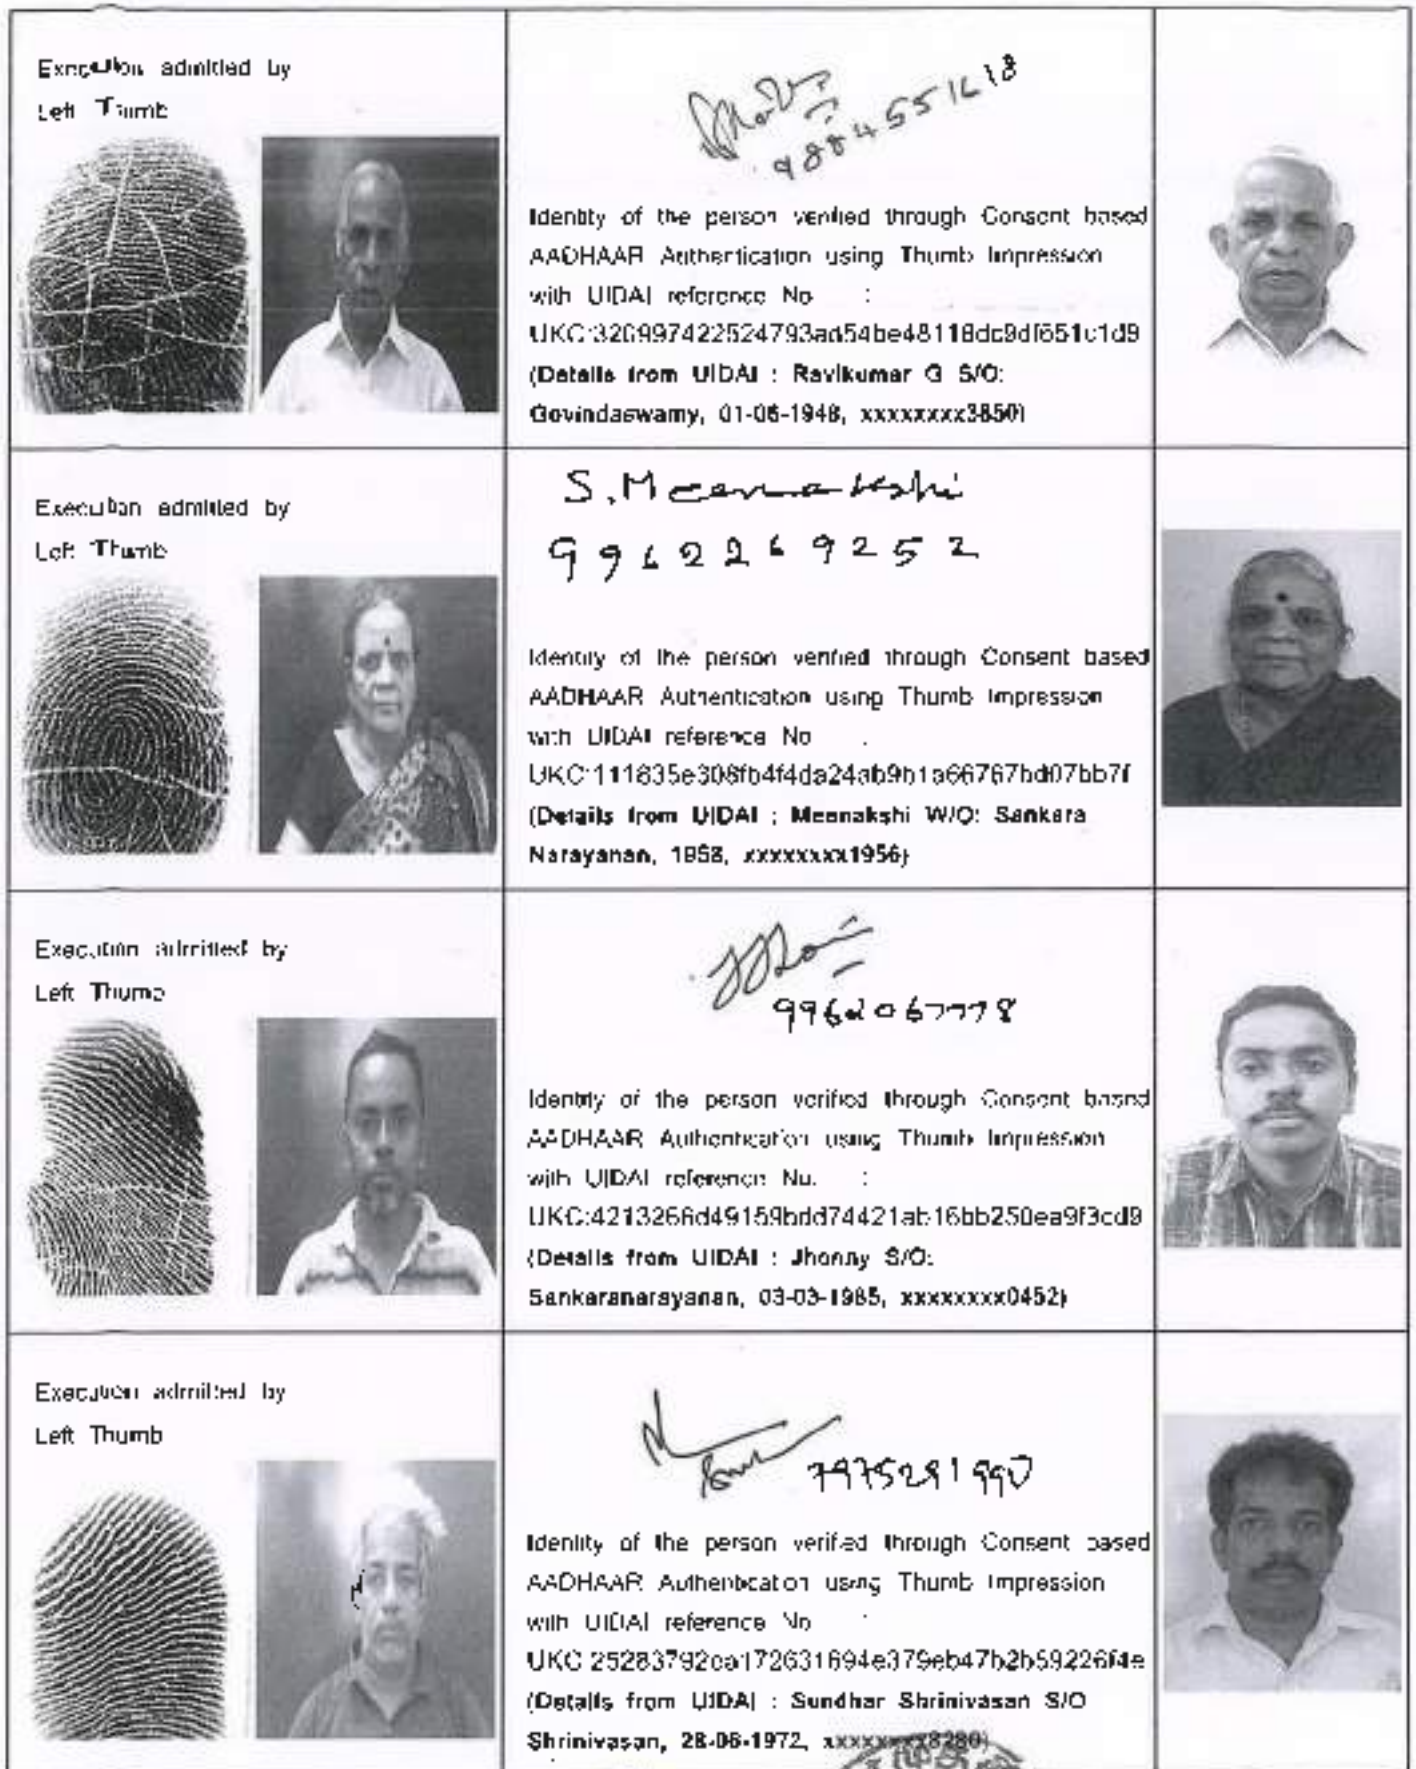 Execution admitted by
Left Thumb
9884551618
Identity of the person verified through Consent based
AADHAAR Authentication using Thumb Impression
with UIDAI reference No :
(Details from UIDAI : Ravikumar G S/O:
Govindaswamy, 01-06-1948, xxxxxxxx3850)
Execution admitted by
Left Thumb
S.Meenakshi
9962269252
Identity of the person verified through Consent based
AADHAAR Authentication using Thumb Impression
with UIDAI reference No :
UKC:111835e308fb4f4da24ab9b1a66767bd07bb7f
(Details from UIDAI : Meenakshi W/O: Sankara
Narayanan, 1958, xxxxxxxx1956)
Execution admitted by
Left Thumb
Identity of the person verified through Consent based
AADHAAR Authentication using Thumb Impression
with UIDAI reference No. :
UKC:4213266d49159bdd74421ab16bb250ea9f3cd9
(Details from UIDAI : Jhonny S/O:
Sankaranarayanan, 03-03-1985, xxxxxxxx0452)
Execution admitted by
Left Thumb
Identity of the person verified through Consent based
AADHAAR Authentication using Thumb Impression
with UIDAI reference No :
UKC:25283792ea172631694e379eb47b2b59226f4e
(Details from UIDAI : Sundhar Shrinivasan S/O
Shrinivasan, 28-06-1972, xxxxxxxx8280)